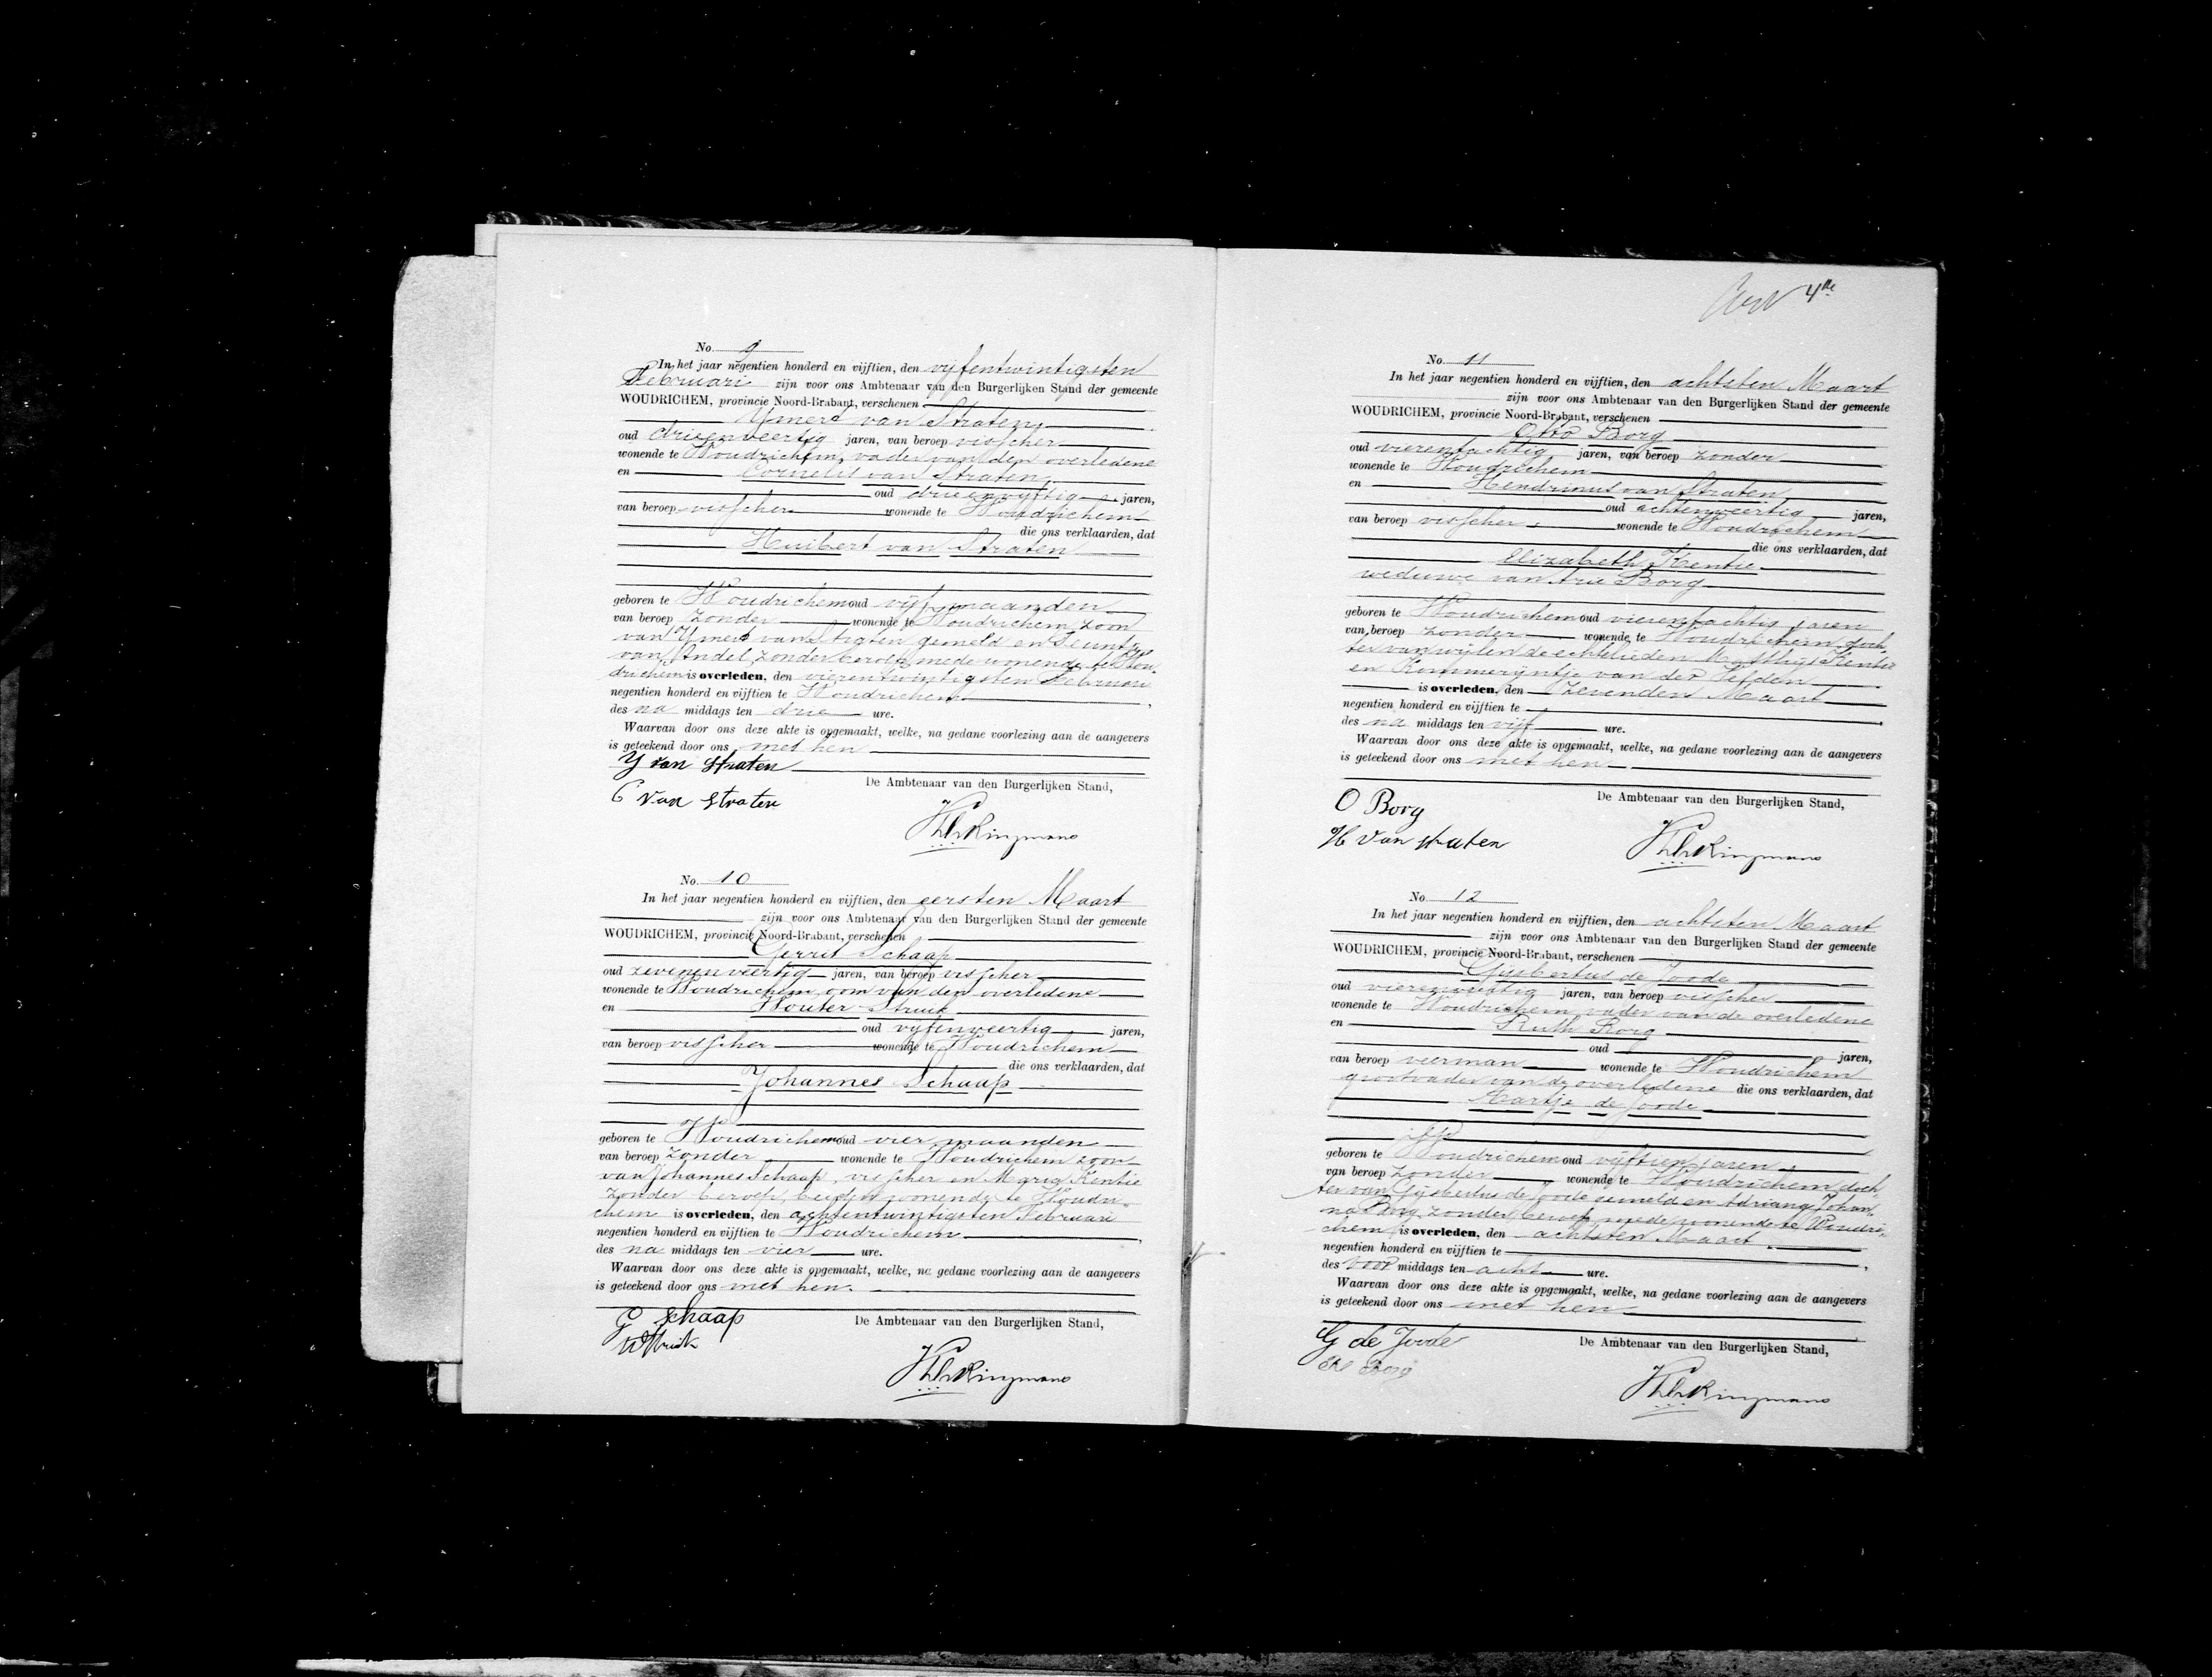 No. 9
In het jaar negentien honderd en vijftien, den vijfentwintigsten
Februari zijn voor ons Ambtenaar van den Burgerlijken Stand der gemeente
WOUDRICHEM, provincie Noord-Brabant, verschenen
Ymert van Straten,
oud drieenveertig jaren, van beroep visscher
wonende te Woudrichem, vader van den overledene
en Cornelis van Straten,
oud drieenvijftig jaren,
van beroep visscher wonende te Woudrichem
die ons verklaarden, dat
Huibert van Straten
geboren te Woudrichem oud vijf maanden
van beroep zonder wonende te Woudrichem, zoon
van Ymert van Straten gemeld en Teuntje
van Andel, zonder beroep, mede wonende te Wou-
drichem is overleden, den vierentwintigsten Februari
negentien honderd en vijftien te Woudrichem,
des na middags ten drie ure.
Waarvan door ons deze akte is opgemaakt, welke, na gedane voorlezing aan de aangevers
is geteekend door ons met hen
Y van Straten
De Ambtenaar van den Burgerlijken Stand,
C van Straten
No. 10
In het jaar negentien honderd en vijftien, den eersten Maart
zijn voor ons Ambtenaar van den Burgerlijken Stand der gemeente
WOUDRICHEM, provincie Noord-Brabant, verschenen
Gerrit Schaap
oud zevenenveertig jaren, van beroep visscher
wonende te Woudrichem, oom van den overledene
en Wouter Struik
oud vijfenveertig jaren,
van beroep visscher wonende te Woudrichem
die ons verklaarden, dat
Johannes Schaap
geboren te Woudrichem oud vier maanden
van beroep zonder wonende te Woudrichem zoon
van Johannes Schaap, visscher en Maria Kentie
zonder beroep, beiden wonende te Woudri-
chem is overleden, den achtentwintigsten Februari
negentien honderd en vijftien te Woudrichem,
des na middags ten vier ure.
Waarvan door ons deze akte is opgemaakt, welke, na gedane voorlezing aan de aangevers
is geteekend door ons met hen.
G Schaap
De Ambtenaar van den Burgerlijken Stand,
W Struik
4de
No. 11
In het jaar negentien honderd en vijftien, den achtsten Maart
zijn voor ons Ambtenaar van den Burgerlijken Stand der gemeente
WOUDRICHEM, provincie Noord-Brabant, verschenen
Otto Borg
oud vierentachtig jaren, van beroep zonder
wonende te Woudrichem
en Hendrinus van Straten
oud achtenveertig jaren,
van beroep visscher wonende te Woudrichem
die ons verklaarden, dat
Elizabeth Kentie
weduwe van Arie Borg
geboren te Woudrichem oud vierentachtig jaren
van beroep zonder wonende te Woudrichem, doch-
ter van wijlen de echtelieden Matthijs Kentie
en Kommerijntje van der
is overleden, den zevenden Maart
negentien honderd en vijftien te
des na middags ten vijf ure.
Waarvan door ons deze akte is opgemaakt, welke, na gedane voorlezing aan de aangevers
is geteekend door ons met hen
De Ambtenaar van den Burgerlijken Stand,
O Borg
H van Straten
No. 12
In het jaar negentien honderd en vijftien, den achtsten Maart
zijn voor ons Ambtenaar van den Burgerlijken Stand der gemeente
WOUDRICHEM, provincie Noord-Brabant, verschenen
Gijsbertus de Joode
oud vierenveertig jaren, van beroep visscher
wonende te Woudrichem, vader van de overledene
en Ruth Borg
oud jaren,
van beroep veerman wonende te Woudrichem
grootvader van de overledene die ons verklaarden, dat
Aartje de Joode
geboren te Woudrichem oud vijftien jaren,
van beroep zonder wonende te Woudrichem, doch-
ter van Gijsbertus de Joode gemeld en Adriana Johan-
na Borg, zonder beroep mede wonende te Woudri-
chem is overleden, den achtsten Maart
negentien honderd en vijftien te,
des voor middags ten acht ure.
Waarvan door ons deze akte is opgemaakt, welke, na gedane voorlezing aan de aangevers
is geteekend door ons met hen
G de Joode
De Ambtenaar van den Burgerlijken Stand,
R Borg